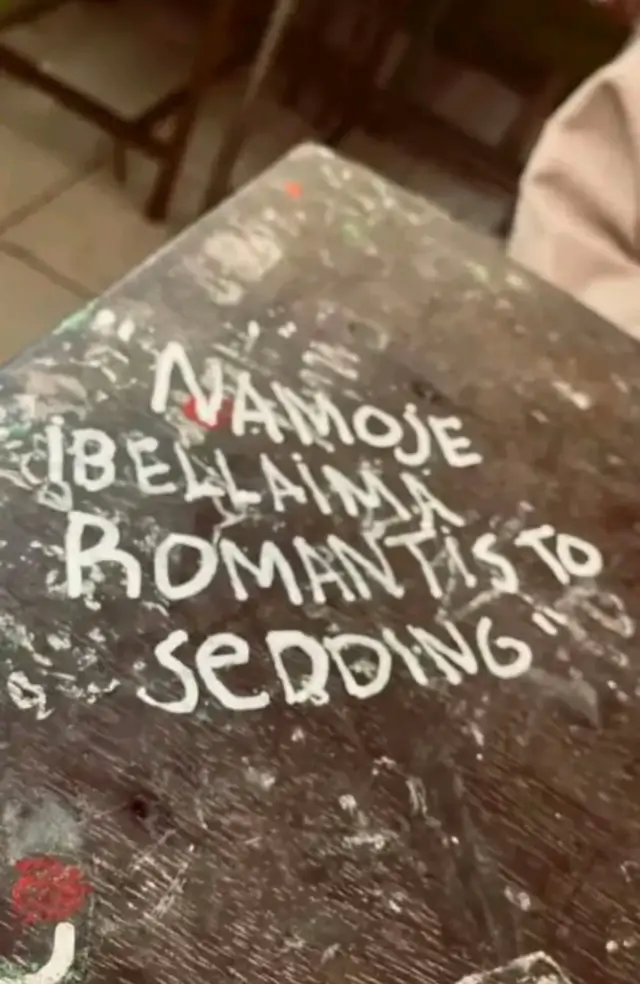 "NAMOJE
iBELLAiMA
ROMANTiS TO
SeDDING"